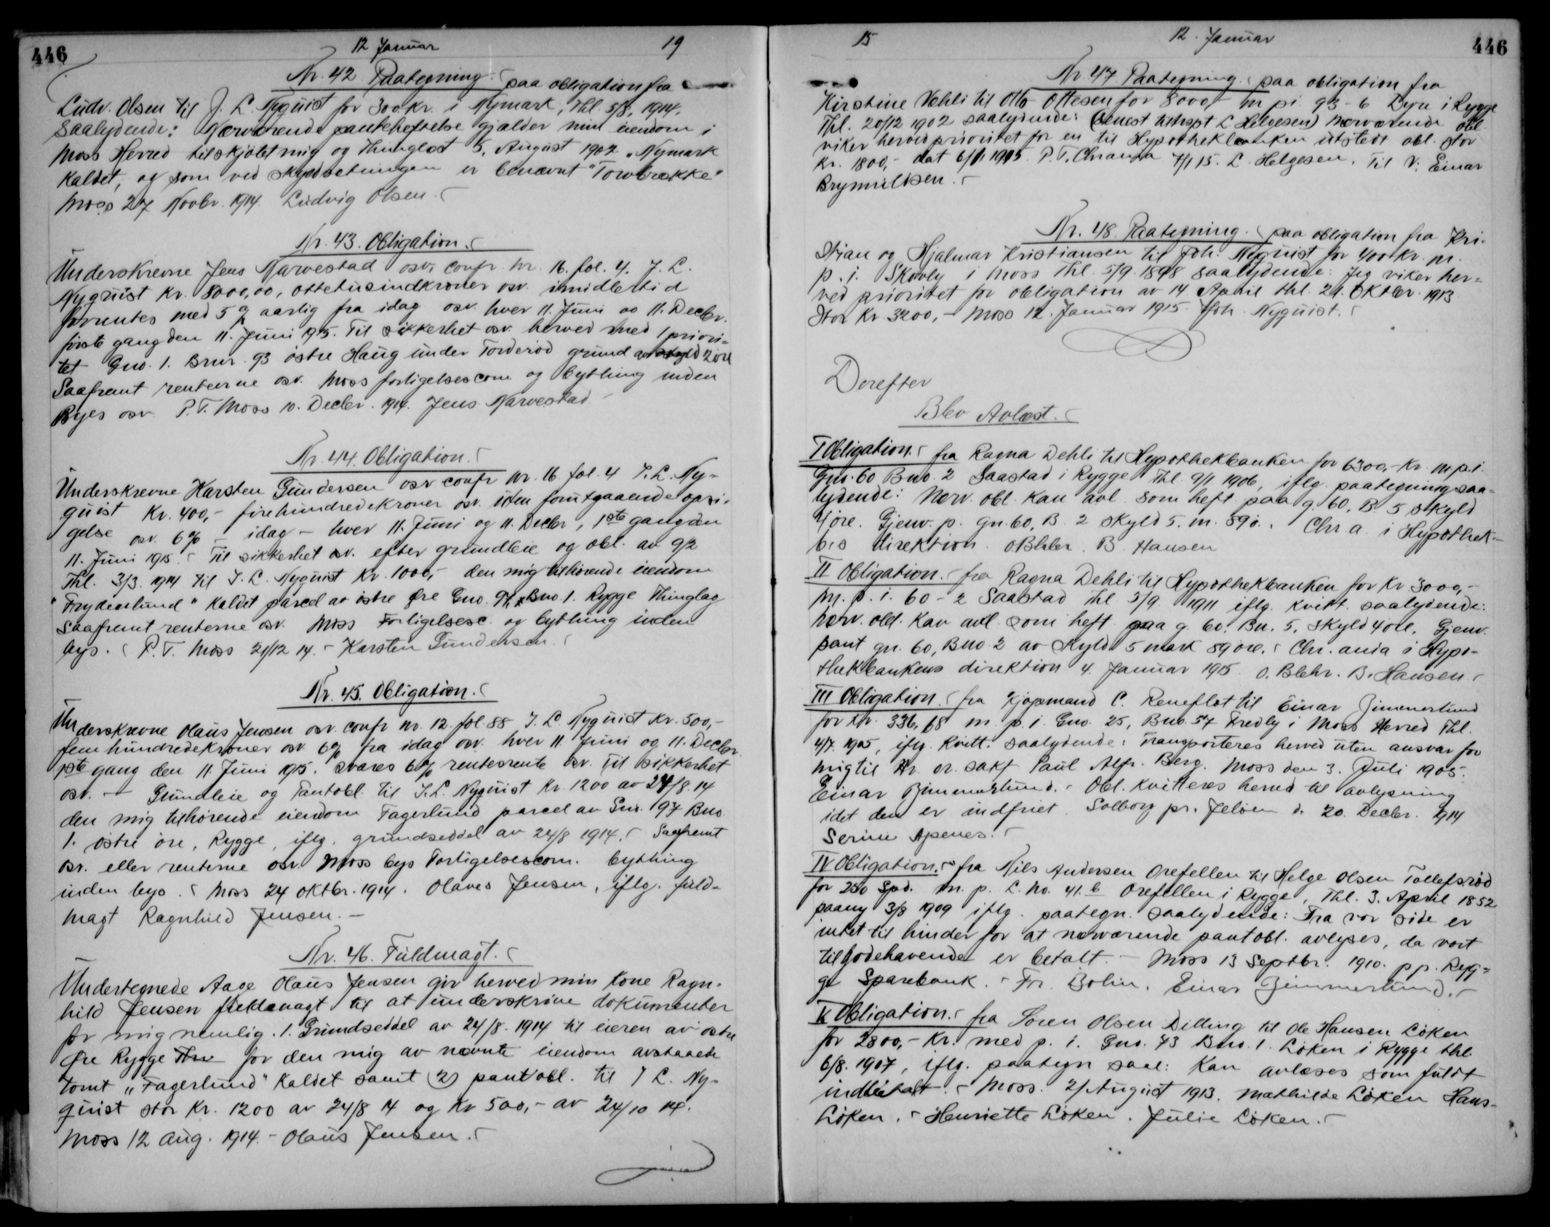 446
12 Januar
19
Nr. 42 Paategning. paa obligation fra
Ludv. Olsen til J. L. Nyquist for 300 kr. i Nymark, Thl 5/8, 1914.
Saalydende: Nærværende panteheftelse gjælder min eiendom i
Moss Herred tilskjøtet mig og thinglæst 5. August 1902 "Nymark
kaldet, og som ved skyldsetningen er benævnt "Torvbække"
Moss 27 Novbr. 1914. Ludvig Olsen.
Nr. 43. Obligation.
Underskrevne Jens Narvestad osv. confr nr. 16. fol. 4. J. L.
Nyquist Kr. 8000,00, ottetusindkroner osv. imidlertid
forrentes med 5 % aarlig fra idag osv. hver 11. Juni og 11. Decbr.
første gang den 11. Juni 1915. Til sikkerhet osv. herved med 1 priori-
tet Gno. 1. Bnr. 93 østre Haug under Torderød grund av skyld 2 øre
Saafremt renterne osv. Moss forligelsescom og bything inden
Byes osv. P.T. Moss 10. Decbr. 1914. Jens Narvestad
Nr. 44. Obligation.
Underskrevne Karsten Gundersen osv confr nr. 16 fol. 4 J. L. Ny-
quist Kr. 400,- firehundredekroner osv. uten forutgaaende opsi-
gelse osv. 6% - idag - hver 11. Juni og 11. Decbr, 1ste gang den
11. Juni 1915. Til sikkerhet osv. efter grundleie og obl. av 9/2
Thl. 3/3. 1914 til J. L. Nyquist Kr. 1000,- den mig tilhørende eiendom
"Frydenlund" kaldet parcel av østre Øre Gno. Bno 1. Rygge Thinglag
Saafremt renterne osv. Moss Forligelsesc. og bything inden
bys. P. T. Moss 21/12 14. - Karsten Gundersen.
Nr. 45. Obligation.
Underskrevne Olaus Jensen osv confr nr. 12. fol 88 J. L. Nyquist Kr. 500,-
femhundredekroner osv 6% fra idag osv. hver 11 Juni og 11. Decbr
1ste gang den 11 Juni 1915. svares 6% rentesrente osv. til sikkerhet
osv. - Grundleie og Pantobl. til J. L. Nyquist Kr. 1200 av 24/8 14
den mig tilhørende eiendom Fagerlund parcel av Gnr. 197 Bno
1. østre øre, Rygge, iflg. grundseddel av 24/8 1914. Saafremt
osv. eller renterne osv. Moss bys Forligelsescom. bything
inden bys. Moss 24 oktbr. 1914. Olaves Jensen, iflg. fuld-
magt Ragnhild Jensen. -
Nr. 46. Fuldmagt.
Undertegnede Aage Olaus Jensen gir herved min kone Ragn-
hild Jensen fuldmagt til at underskrive dokumenter
for mig nemlig. 1. Grundseddel av 24/8. 1914 til eieren av østre
Øre Rygge for den mig av nævnte eiendom avstaaede
tomt "Fagerlund" kaldet samt (2) pantobl. til J L. Ny-
quist stor Kr. 1200 av 24/8 14 og Kr 500,- av 24/10 14.
Moss 12 Aug. 1914. - Olaus Jensen.
15
12. Januar
446
Nr 47 Paategning. paa obligation fra
Kirstine Vehli til Otto Ottesen for 8000,- m p i 93 - 6 Dyre i Rygge
Thl. 20/12 1902 saalydende: (senest tilhørt L Helgesen) Nærværende obl.
viker herved prioritet for en til Hypothekbanken utstedt obl. stor
Kr. 1800,- dat 6/1 1915. P.T. Chrania 7/1 15. L Helgesen. Til V. Einar
Brynildsen.
Nr. 48. Paategning. paa obligation fra Kri-
stian og Hjalmar Kristiansen til Joh. Nyquist for 400 kr. m.
p. i. Skovly i Moss Thl. 5/9 1898 saalydende: Jeg viker her-
ved prioritet for obligation av 14 April thl. 21. Oktbr. 1913
stor Kr 3200,- Moss 12. Januar 1915 - Joh. Nyquist.
Derefter
Blev Avlæst.
I Obligation. fra Ragna Dehli til Hypothekbanken for 6300,- Kr. m p i
Gno. 60 Bno. 2 Saastad i Rygge Thl. 9/1 1906, iflg. paategning saa-
lydende: Nærv. obl. kan avl. som heft paa g 60, B. 5 skyld
4 øre. Gjenv. p. gn. 60, B. 2 skyld 5. m. 59 ø. Chr a. i Hypothek-
b's direktion. O Blehr. B. Hansen
II Obligation. fra Ragna Dehli til Hypothekbanken for Kr 3000,-
m. p. i. 60 - 2 Saastad Thl 5/9 1911 iflg. kvitt. saalydende:
nærv. obl. kan avl som heft paa g 60. Bn. 5, skyld 4 øre. Gjenv.
pant gn. 60, Bno 2 av skyld 5 mark 59 øre. Chr.ania i Hypo-
thekbankens direktion 4. Januar 1915 O. Blehr. B. Hansen
III Obligation. fra Kjøpmand C. Reneflot til Einar Zimmerlund
for Kr. 336,65 m. p i. Gno. 25, Bno. 57 Fredly i Moss Herred Thl.
4/7. 1905, iflg. kvitt. saalydende: Transporteres herved uten ansvar for
mig til Hr. or. sakf Paul Alfr. Berg. Moss den 3. Juli 1905.
Einar Zimmerlund. Obl. kvitteres herved til avlysning
idet den er indfriet. Solborg pr. Jelsen d. 20. Decbr. 1914
Serine Apenes.
IV Obligation. fra Nils Andersen Orefellen til Helge Olsen Tollefsrød
for 250 Spd. m. p. L. No. 41. b Orefellen i Rygge, Thl. 3. April 1852
paany 3/8 1909 iflg. paategn. saalydende: Fra vor side er
intet til hinder for at nærværende pantobl. avlyses, da vort
tilgodehavende er betalt. - Moss 13 Septbr. 1910. pp. Ryg-
ge Sparebank. Fr. Bolin. Einar Zimmerlund.
V Obligation. fra Søren Olsen Delling til Ole Hansen Løken
for 2800,- Kr. med p. i. Gno. 43 Bno. 1. Løken i Rygge thl
6/8. 1907, iflg. paategn saal: Kan avlæses som fuldt
indbetalt. Moss. 2/ August 1913. Mathilde Løken Hans
Løken. Henriette Løken. Julie Løken.